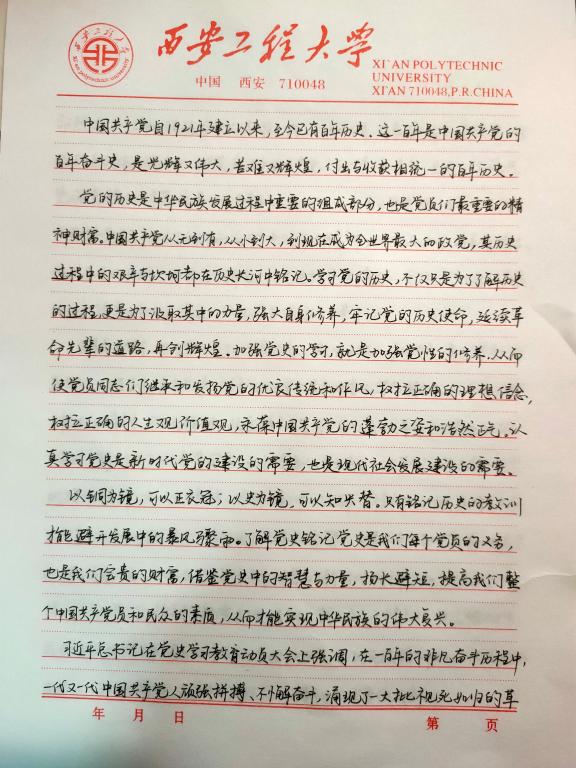 西安工程大学
XI'AN POLYTECHNIC
UNIVERSITY
中国 西安 710048
XI'AN 710048,P.R.CHINA
西安工程大学
Xi'an polytechnic university
中国共产党自1921年建立以来,至今已有百年历史。这一百年是中国共产党的
百年奋斗史,是光辉又伟大,苦难又辉煌,付出与收获相统一的百年历史。
党的历史是中华民族发展过程中重要的组成部分,也是党员们最重要的精
神财富。中国共产党从无到有,从小到大,到现在成为全世界最大的政党,其历史
过程中的艰辛与坎坷都在历史长河中铭记。学习党的历史,不仅只是为了了解历史
的过程,更是为了汲取其中的力量,强大自身修养,牢记党的历史使命,延续革
命先辈的道路,再创辉煌。加强党史的学习,就是加强党性的修养,从而
使党员同志们继承和发扬党的优良传统和作风,树立正确的理想信念,
树立正确的人生观价值观,永葆中国共产党的蓬勃之姿和浩然正气。认
真学习党史是新时代党的建设的需要,也是现代社会发展建设的需要。
以铜为镜,可以正衣冠;以史为镜,可以知兴替。只有铭记历史的教训
才能避开发展中的暴风骤雨。了解党史铭记党史是我们每个党员的义务,
也是我们宝贵的财富,借鉴党史中的智慧与力量,扬长避短,提高我们整
个中国共产党员和民众的素质,从而才能实现中华民族的伟大复兴。
习近平总书记在党史学习教育动员大会上强调,在一百年的非凡奋斗历程中,
一代又一代中国共产党人顽强拼搏、不懈奋斗,涌现了一大批视死如归的革
年 月 日 第 页